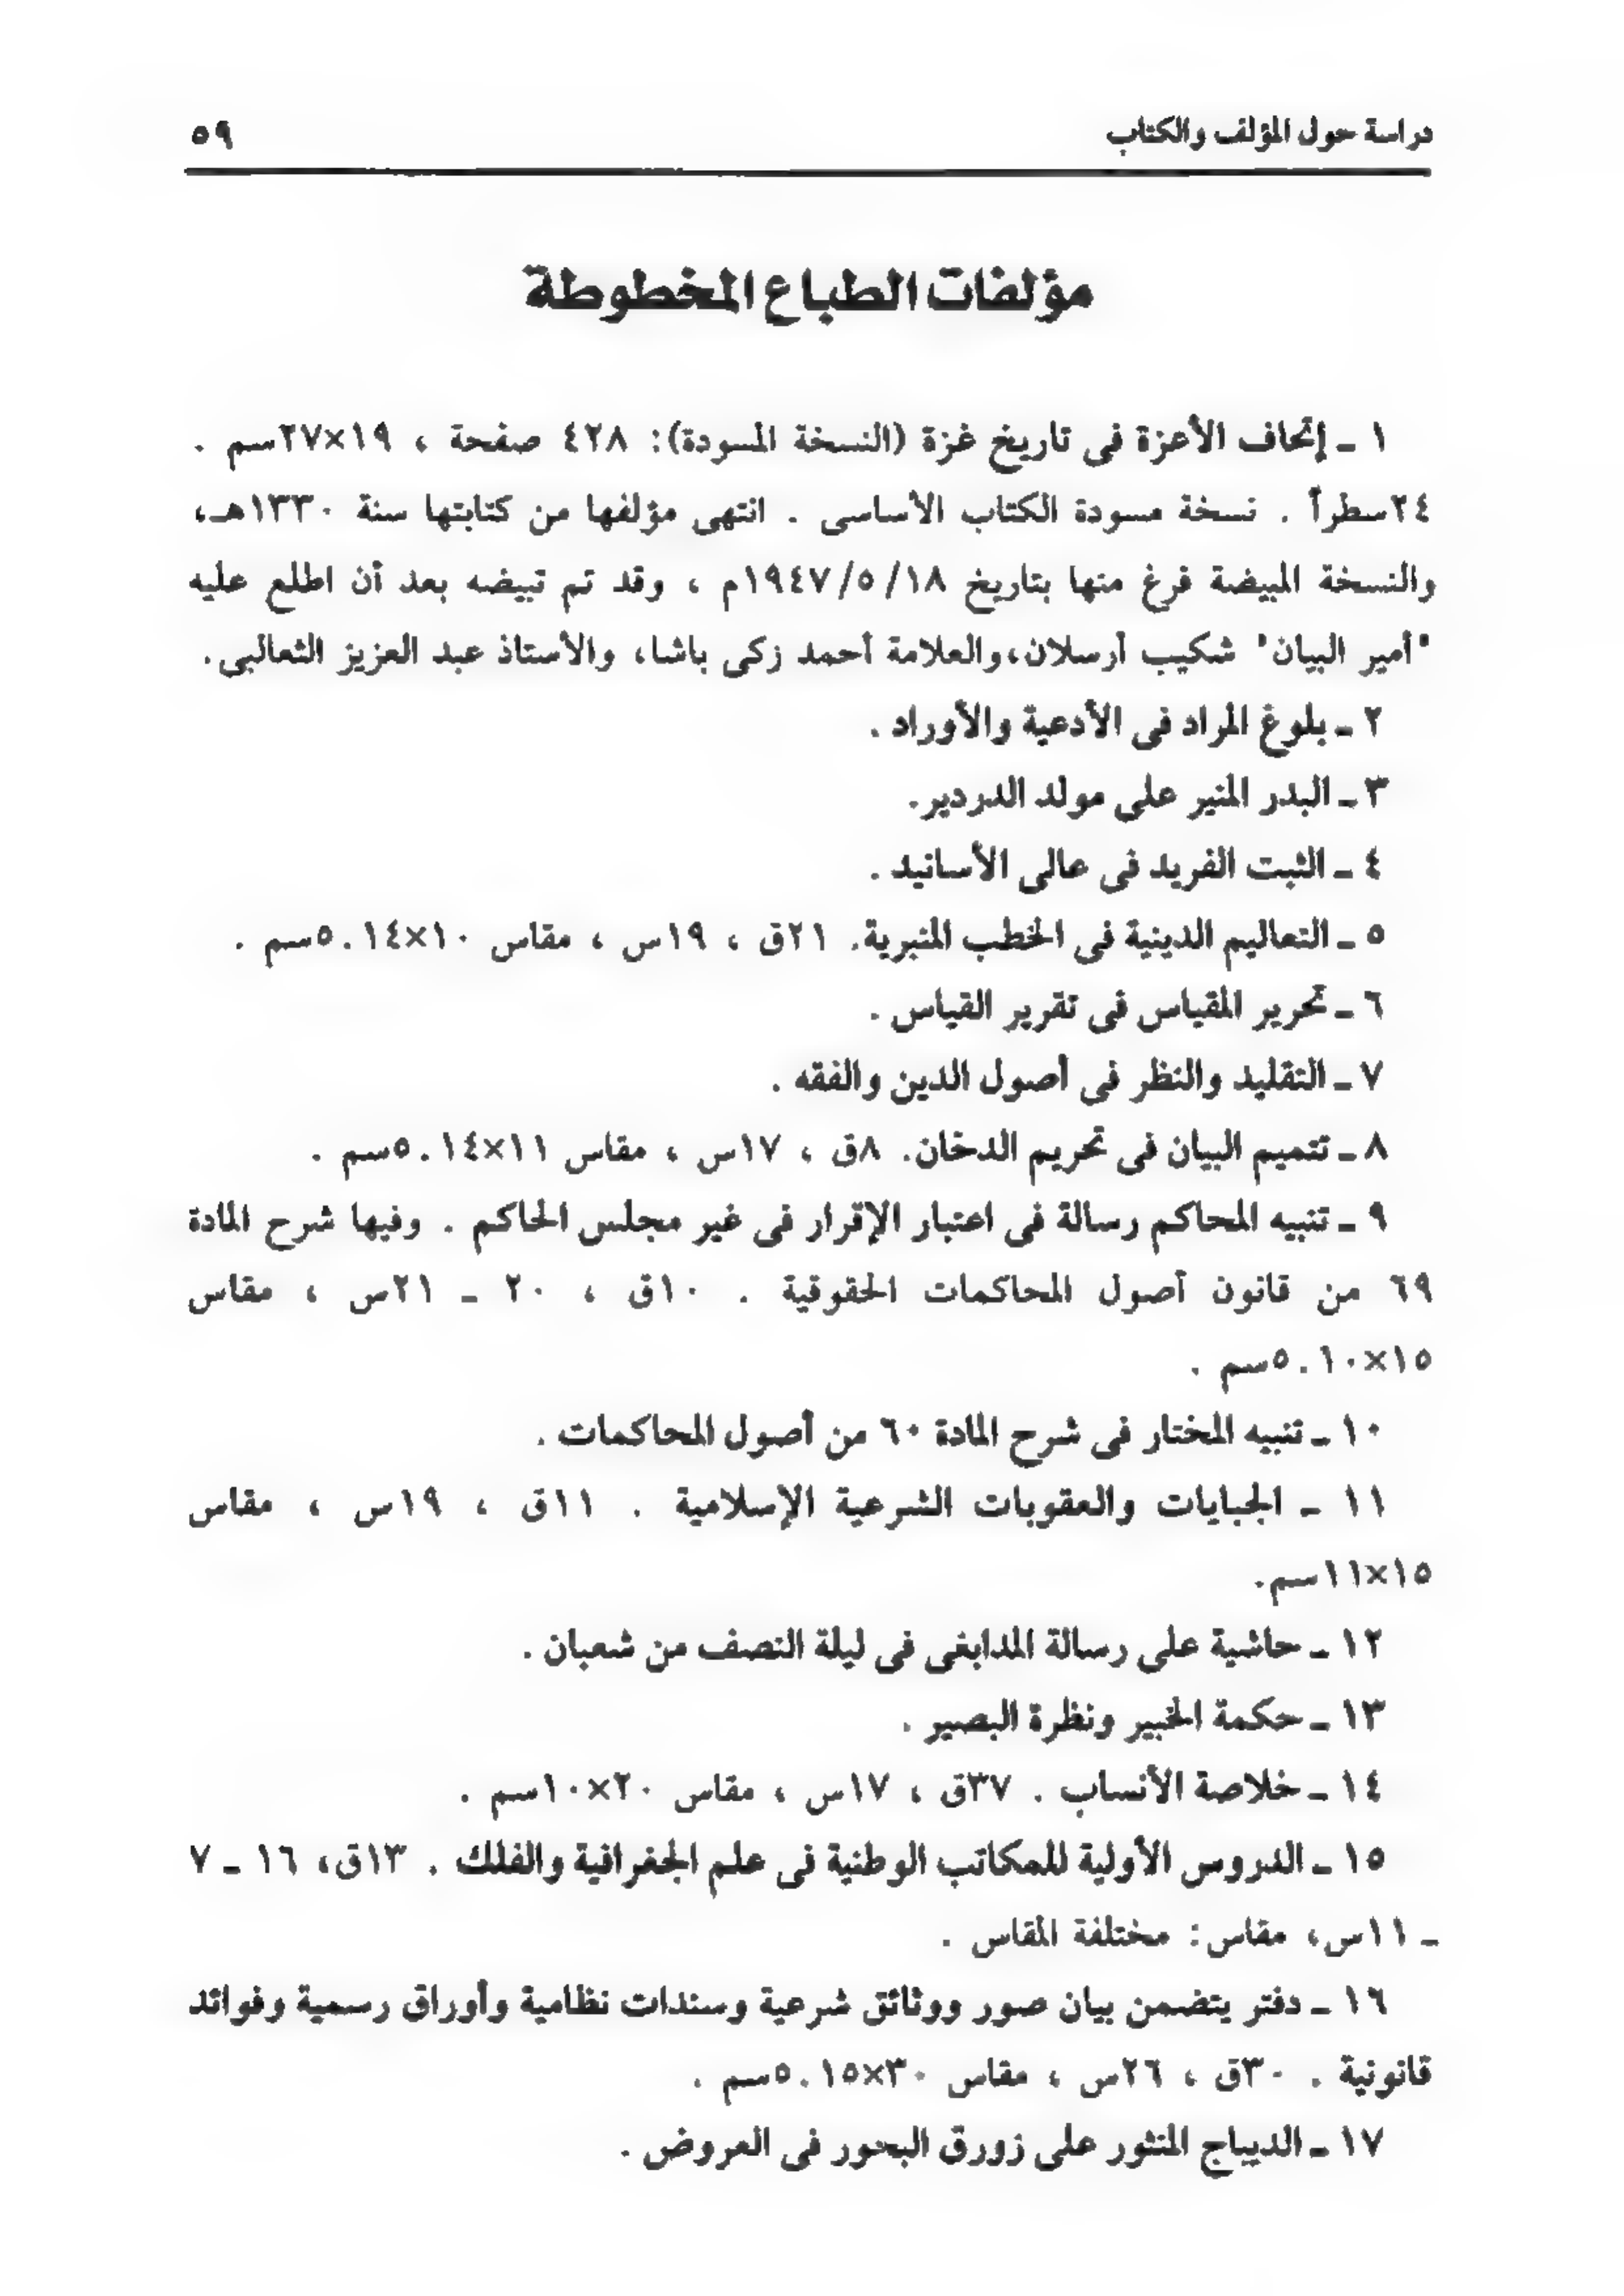 دراسة حول المؤلف والكتاب ٥٩
مؤلفات الطباع المخطوطة
١ ـ إتحاف الأعزة فى تاريخ غزة (النسخة المسودة): ٤٢٨ صفحة ، ١٩×٢٧سم .
٢٤سطراً . نسخة مسودة الكتاب الأساسى . انتهى مؤلفها من كتابتها سنة ١٣٣٠هـ،
والنسخة المبيضة فرغ منها بتاريخ ١٩٤٧/٥/١٨م ، وقد تم تبيضه بعد أن اطلع عليه
"أمير البيان" شكيب أرسلان،والعلامة أحمد زكى باشا، والأستاذ عبد العزيز الثعالبى.
٢ ـ بلوغ المراد فى الأدعية والأوراد .
٣ ـ البدر المنير على مولد الدردير.
٤ ـ الثبت الفريد فى عالى الأسانيد .
٥ ـ التعاليم الدينية فى الخطب المنبرية. ٢١ق ، ١٩س ، مقاس ١٠×١٤.٥سم .
٦ ـ تحرير المقياس فى تقرير القياس .
٧ ـ التقليد والنظر فى أصول الدين والفقه .
٨ ـ تتميم البيان فى تحريم الدخان. ٨ق ، ١٧س ، مقاس ١١×١٤.٥سم .
٩ ـ تنبيه المحاكم رسالة فى اعتبار الإقرار فى غير مجلس الحاكم . وفيها شرح المادة
٦٩ من قانون أصول المحاكمات الحقوقية . ١٠ق ، ٢٠ ـ ٢١س ، مقاس
١٥×١٠.٥سم .
١٠ ـ تنبيه المختار فى شرح المادة ٦٠ من أصول المحاكمات .
١١ ـ الجبايات والعقوبات الشرعية الإسلامية . ١١ق ، ١٩س ، مقاس
١٥×١١سم.
١٢ ـ حاشية على رسالة المدابغى فى ليلة النصف من شعبان .
١٣ ـ حكمة الخبير ونظرة البصير .
١٤ ـ خلاصة الأنساب . ٣٧ق ، ١٧س ، مقاس ٢٠×١٠سم .
١٥ ـ الدروس الأولية للمكاتب الوطنية فى علم الجغرافية والفلك . ١٣ق، ١٦ ـ ٧
ـ ١١س، مقاس: مختلفة المقاس .
١٦ ـ دفتر يتضمن بيان صور ووثائق شرعية وسندات نظامية وأوراق رسمية وفوائد
قانونية . ٣٠ق ، ٢٦س ، مقاس ٣٠×١٥.٥سم .
١٧ ـ الديباج المنثور على زورق البحور فى العروض .